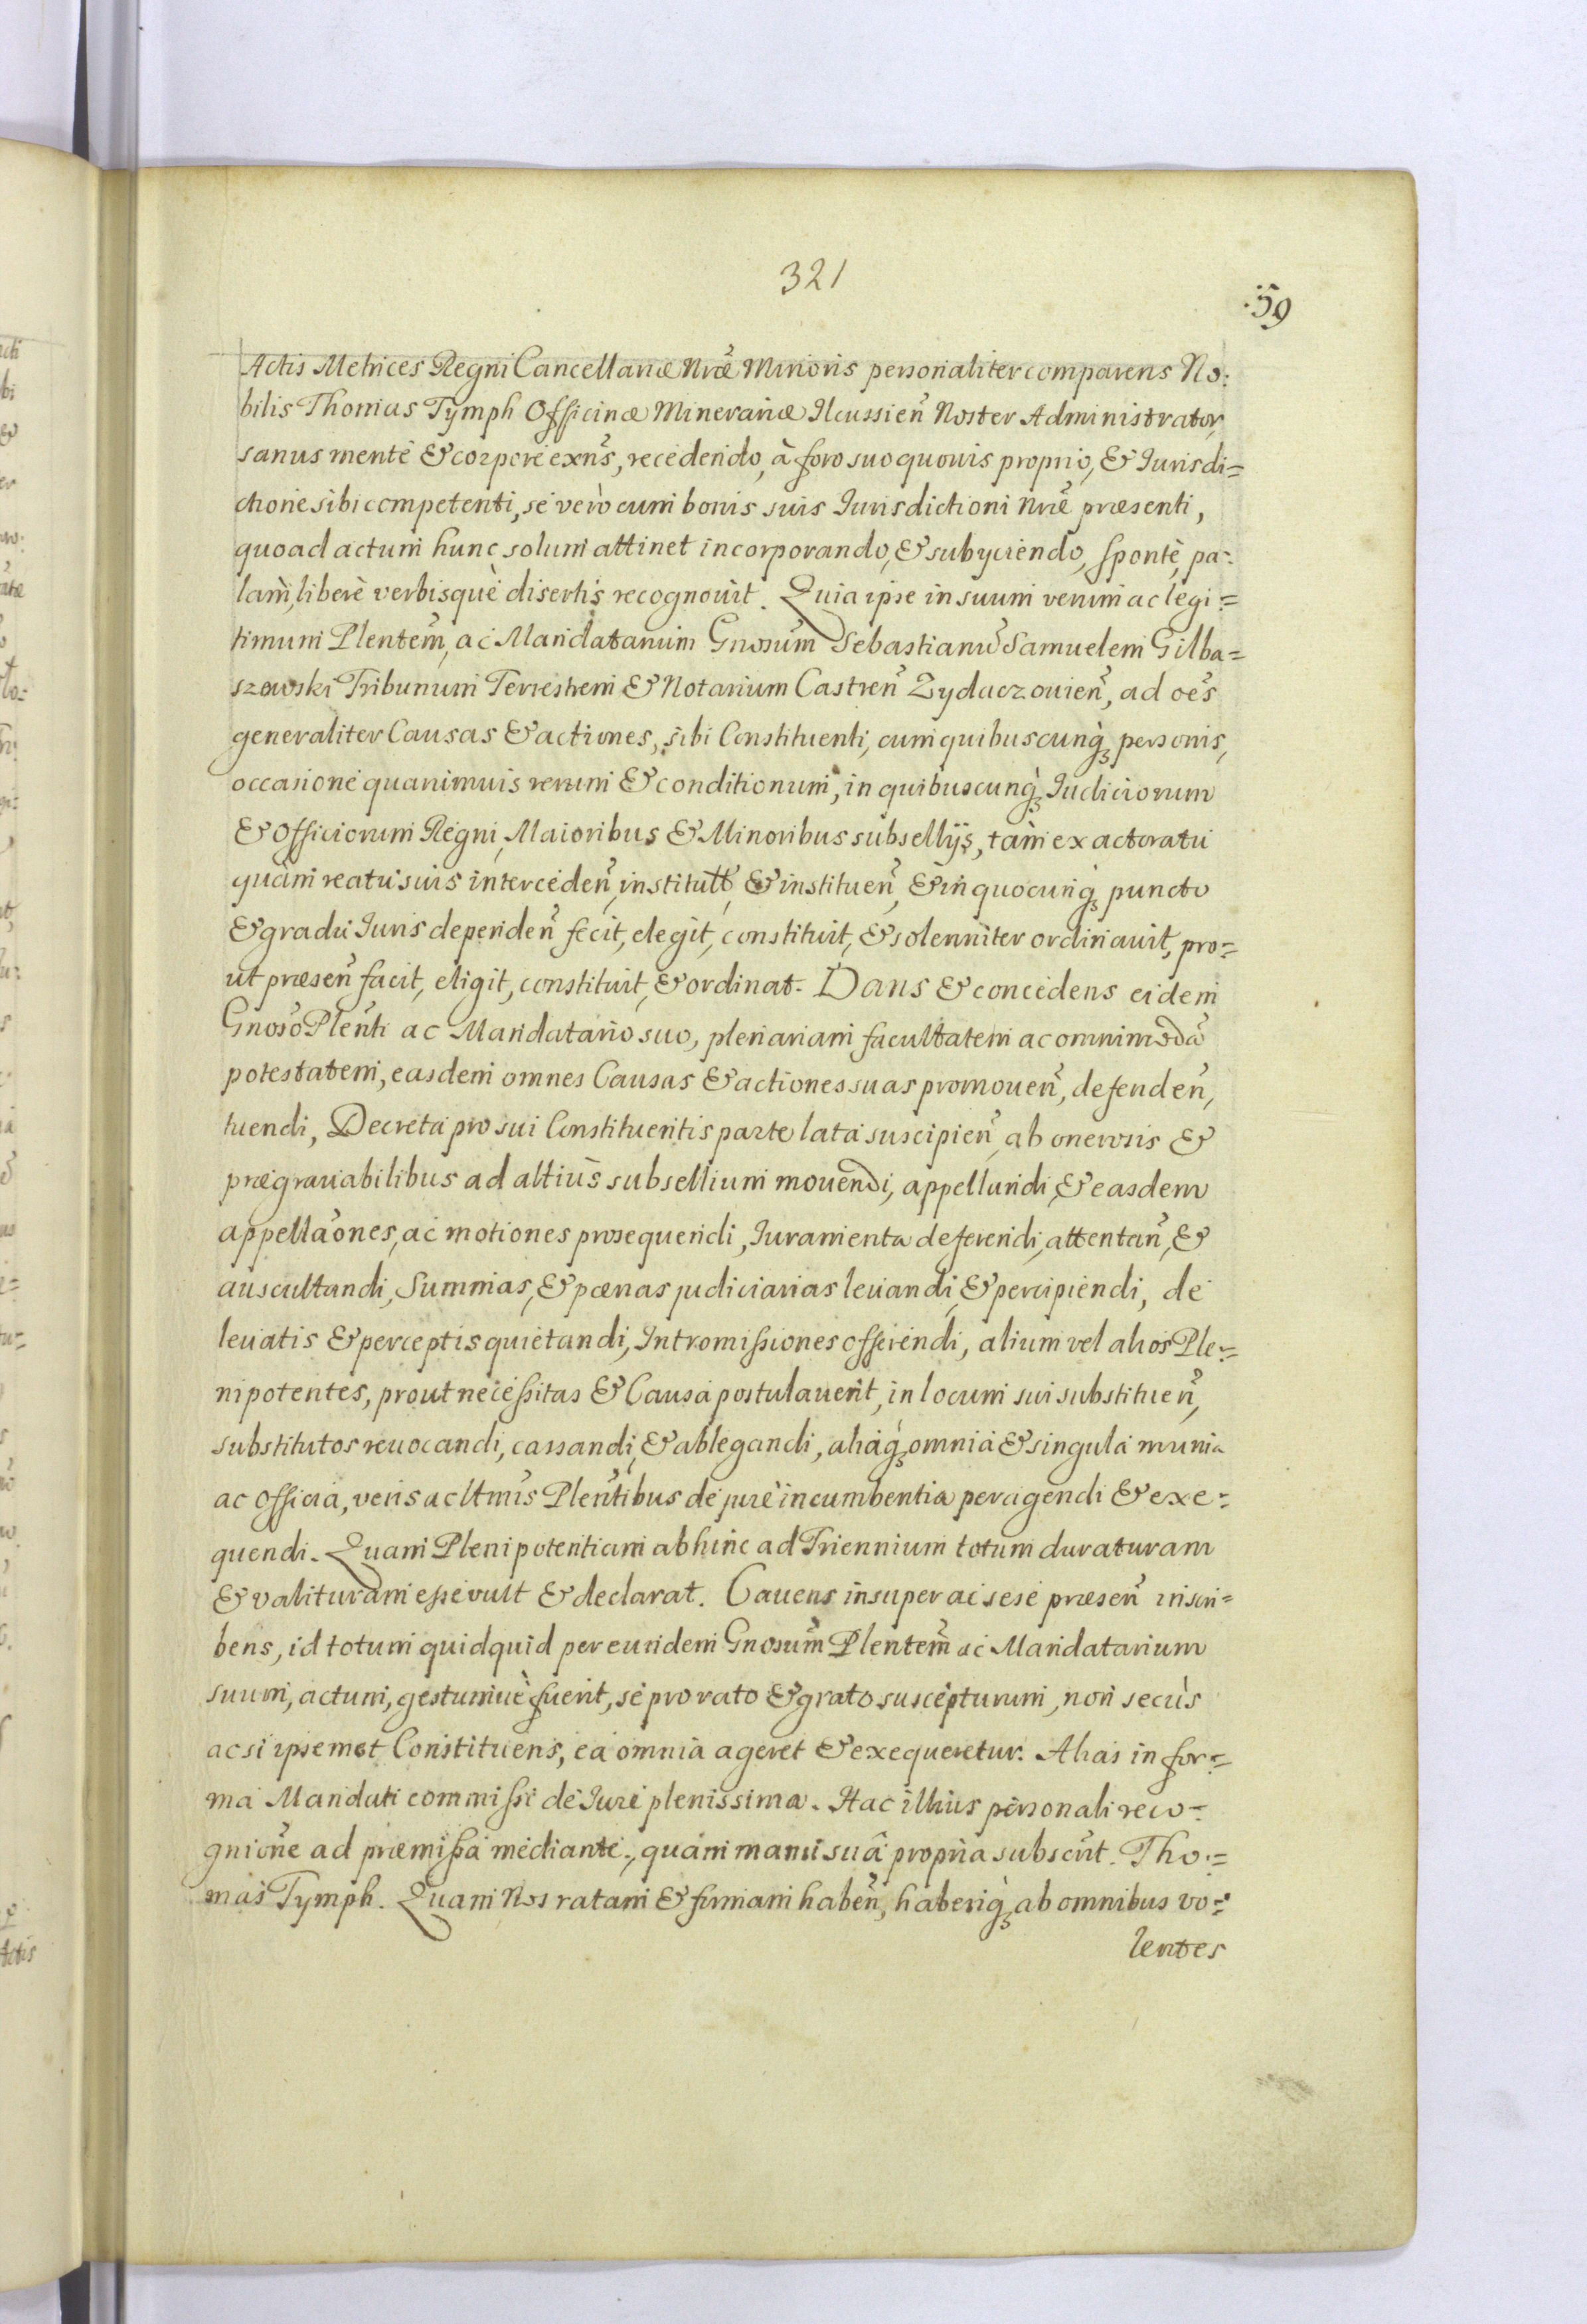 321
:59
Actis Metrices Regni Cancellariæ Nræ̃ Minoris personaliter comparens No:
bilis Thomas Tymph Officinæ Minerariæ Ilcussien̄ Noster Administrator,
sanus mente & corpore exn̄s, recedendo, à foro suo quouis proprio, & Jurisdi=
ctione sibi competenti, se verò cum bonis suis Jurisdictioni Nræ̃ præsenti,
quoad actum hunc solum attinet incorporando, & subyciendo, sponte, pa=
lam, liberè verbisquè disertis recognouit. Quia ipse in suum verum ac legi=
timum Plentem̄, ac Mandatarium Gnosum̄ Sebastianū Samuelem Gilba=
szowski Tribunum Terrestrem & Notarium Castren̄ Zydaczouien̄, ad oēs
generaliter Causas & actiones, sibi Constituenti, cum quibuscunq̨̀ personis,
occasione quarumuis rerum & conditionum, in quibuscunq̨̀ Iudiciorum
& Officiorum Regni, Maioribus & Minoribus subsellijs, tàm ex actoratu
quàm reatu suis interceden̄, institutt̄, & instituen̄, & in quocunq̨̀ puncto
& gradu Iuris dependen̄ fecit, elegit, constituit, & solenniter ordinauit, pro=
ut præsen̄ facit, eligit, constituit, & ordinat. Dans & concedens eidem
Gnosō Plen̄ti ac Mandatario suo, plenariam facultatem ac omnimodā
potestatem, easdem omnes Causas & actiones suas promouen̄, defenden̄,
tuendi, Decreta pro sui Constituentis parte lata suscipien̄, ab onerosis &
prægrauabilibus ad altiùs subsellium mouendi, appellandi, & easdem
appellāones, ac motiones prosequendi, Iuramenta deferendi, attentan̄, &
auscultandi, Summas, & pœnas judiciarias leuandi, & percipiendi, de
leuatis & perceptis quietandi, Intromissiones offerendi, alium vel alios Ple=
nipotentes, prout necessitas & Causa postulauerit, in locum sui substituen̄,
substitutos reuocandi, cassandi, & ablegandi, aliaq̨̀ omnia & singula munia
ac officia, veris ac ltmīs Plen̄tibus de jure incumbentia peragendi & exe=
quendi. Quam Plenipotentiam abhinc ad Triennium totum duraturam
& valituram esse vult & declarat. Cavens insuper ac sese præsen̄ inscri=
bens, id totum quidquid per eundem Gnosum̄ Plentem̄ ac Mandatarium
suum, actum, gestumuè fuerit, se pro rato & grato suscepturum, non secùs
ac si ipsemet Constituens, ea omnia ageret & exequeretur. Alias in for=
ma Mandati commissi de Iure plenissima. Hac illius personali reco=
gniōne ad præmissa mediante, quam manu suâ propria subscrīt. Tho=
mas Tymph. Quam Nos ratam & firmam haben̄, haberiq̨̀ ab omnibus vo=
lentes